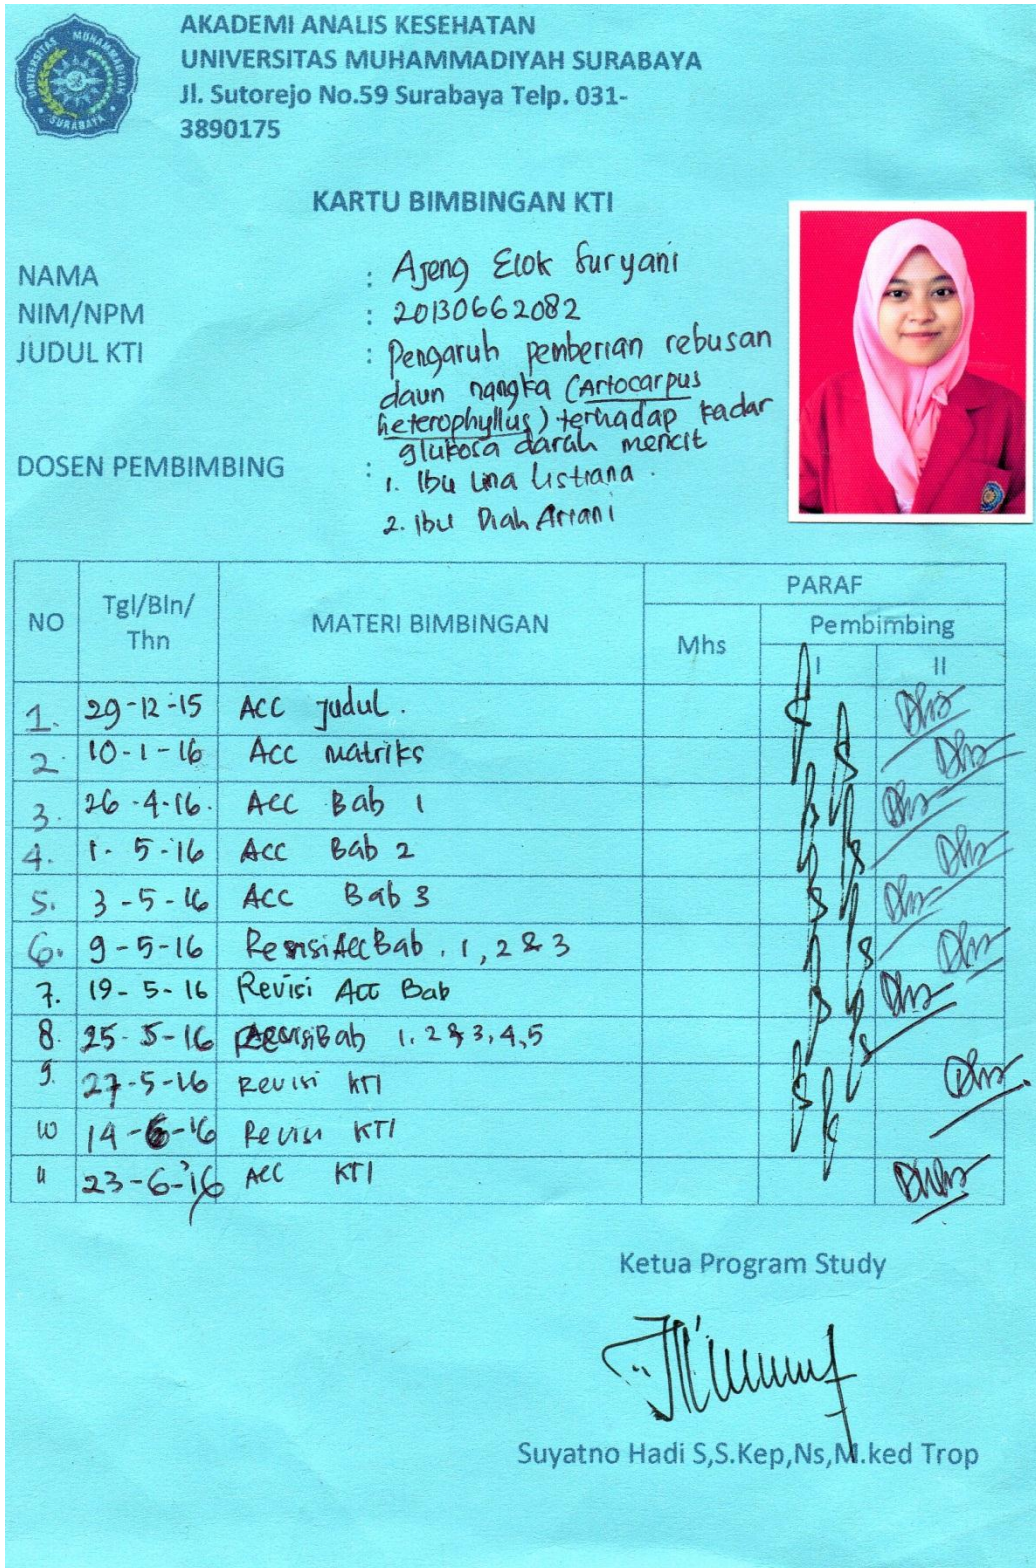 UNIVERSITAS MUHAMMADIYAH SURABAYA
AKADEMI ANALIS KESEHATAN
UNIVERSITAS MUHAMMADIYAH SURABAYA
Jl. Sutorejo No.59 Surabaya Telp. 031-
3890175
KARTU BIMBINGAN KTI
NAMA : Ajeng Elok Suryani
NIM/NPM : 20130662082
JUDUL KTI : Pengaruh pemberian rebusan
daun nangka (Artocarpus
heterophyllus) terhadap kadar
glukosa darah mencit
DOSEN PEMBIMBING : 1. Ibu Lina Listiana.
2. Ibu Diah Ariani
NO Tgl/Bln/Thn MATERI BIMBINGAN PARAF
Mhs Pembimbing
I II
1. 29-12-15 ACC judul.
2. 10-1-16 Acc matriks
3. 26-4-16. Acc Bab 1
4. 1-5-16 Acc Bab 2
5. 3-5-16 Acc Bab 3
6. 9-5-16 Acc Bab. 1, 2 & 3
7. 19-5-16 Revisi Acc Bab
8. 25-5-16 Bab 1, 2 & 3, 4, 5
9. 27-5-16 Revisi KTI
10 14-6-16 Revisi KTI
11 23-6-'16 Acc KTI
Ketua Program Study
Suyatno Hadi S,S.Kep,Ns,M.ked Trop